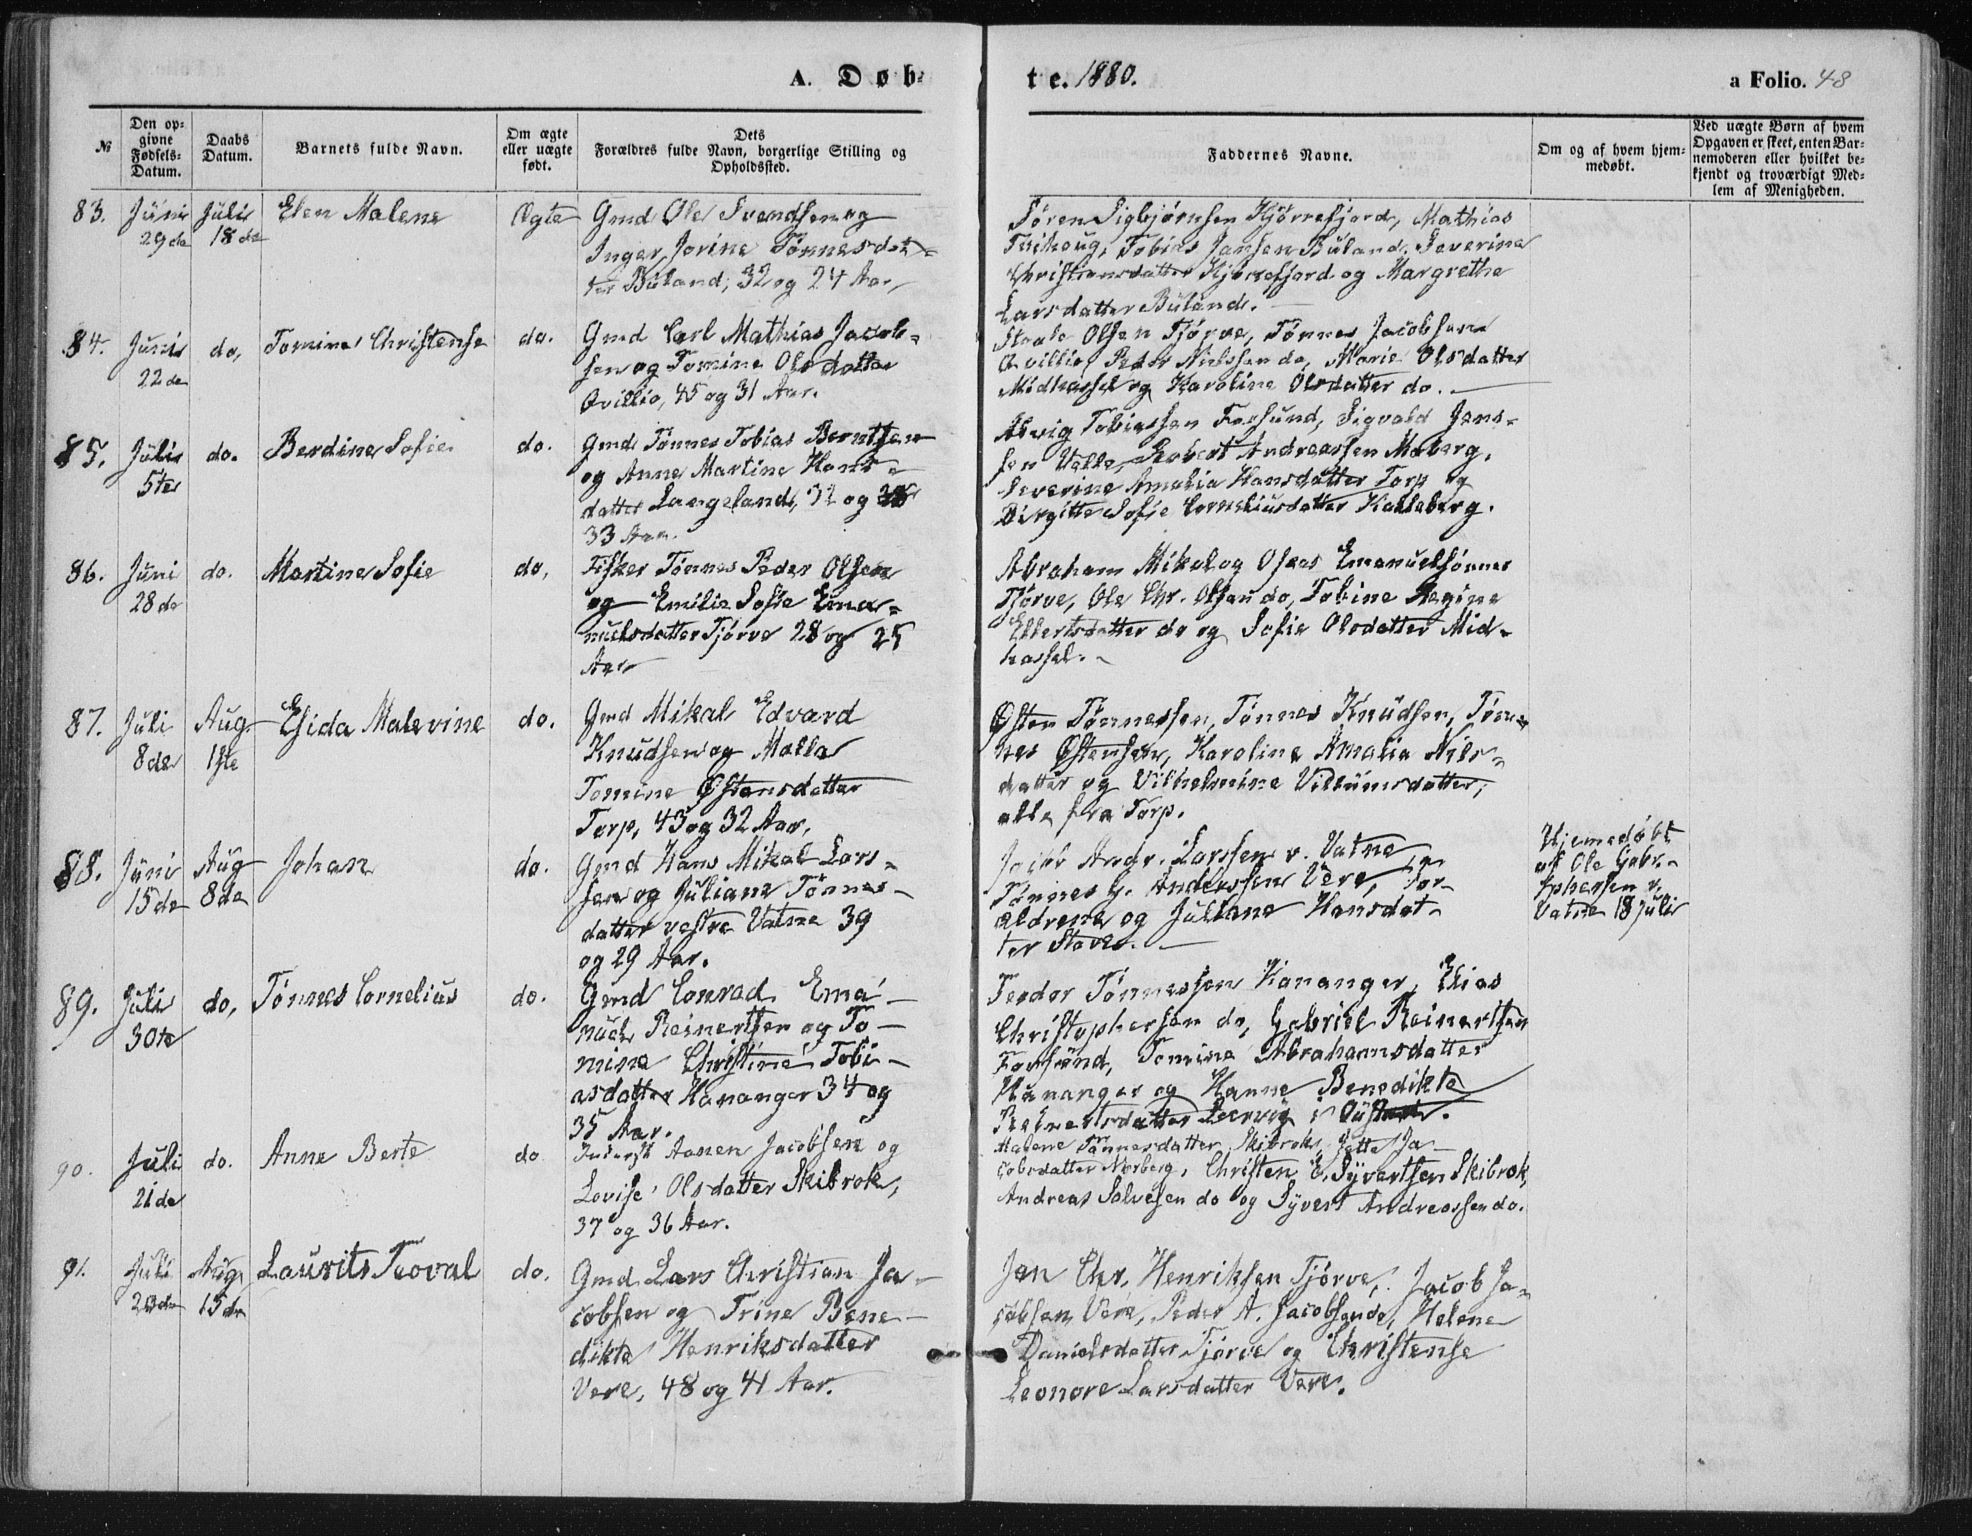 A. Døb-
te. 1880.
a Folio. 48
№
Den op-
givne
Fødsels-
Datum.
Daabs
Datum.
Barnets fulde Navn.
Om ægte
eller uægte
født.
Dets
Forældres fulde Navn, borgerlige Stilling og
Opholdssted.
Faddernes Navne.
Om og af hvem hjem-
medøbt.
Ved uægte Børn af hvem
Opgaven er skeet, enten Bar-
nemoderen eller hvilket be-
kjendt og troværdigt Med-
lem af Menigheden.
83. Juni 29de
Juli 18de
Elen Malene
Ægte
Gmd Ole Svendsen og
Inger Jorine Tønnesdat-
ter Büland, 32 og 24 Aar,
Søren Sigbjørnsen Kjørrefjord, Mathias
Tobias Jansen Büland, Severine
Christiansdatter Kjørrefjord og Margrethe
Larsdatter Büland.
84. Juni 22de
do,
Tomine Christense
do.
Gmd Carl Mathias Jacob-
sen og Tomine Olsdatter
Qvillio, 45 og 31 Aar.
Olsen Tjørve, Tønnes Jacobsen
Qvillio, Peder Nielssen do, Marie Olsdatter
Midhassel og Karoline Olsdatter do.
85. Juli 5te
do.
Berdine Sofie
do.
Gmd Tønnes Tobias Berntsen
og Anne Martine Hans-
datter Langeland, 32 og
33 Aar.
Tobiassen Farsund, Sigvald Jens-
sen Velle, Andreassen Maberg,
Severine Amalia Hansdatter Torp og
Birgitte Sofie Corneliusdatter Kalleberg.
86. Juni 28de
do.
Martine Sofie
do,
Fisker Tønnes Peder Olsen
og Emilie Sofie Ema-
nuelsdatter Tjørve 28 og 25
Aar
Abraham Mikal og Oseas Emanuelsønner
Tjørve, Ole Chr. Olsen do, Tobine Regine
Ellertsdatter do og Sofie Olsdatter Mid-
hassel.
87. Juli 8de
Aug. 1ste
Elida Malevine
do.
Gmd Mikal Edvard
Knudsen og Malla
Tomine Østensdatter
Torp, 43 og 32 Aar,
Østen Tønnessen, Tønnes Knudsen, Tøn-
nes Østensen, Karoline Amalia Nils-
datter og Vilhelmine Villumsdatter,
alle fra Torp.
88. Juni 15de
Aug 8de
Johan
do.
Gmd Hans Mikal Lars-
sen og Juliane Tønnes-
datter vestre Vatne 39
og 29 Aar.
Larssen v. Vatne
Tønnes G. Anderssen Vere, For-
ældrene og Juliane Hansdat-
ter Stave.
Hjemedøbt
af Ole Gabr.
v.
Vatne 18 Juli
89. Juli 30te
do,
Tønnes Cornelius
do.
Gmd Conrad Ema-
nuel Reinertsen og To-
mine Christine Tobi-
asdatter Hananger 34 og
35 Aar.
Teodor Tønnessen Hananger, Elias
Christophersen do, Gabriel Reinertsen
Farsund, Tomine Abrahamsdatter
Hananger og Hanne Benedikte
Reinertsdatter
90. Juli 21de
do.
Anne Berte
do
Aanen Jacobsen og
Lovise Olsdatter Skibrok,
37 og 36 Aar.
Malene Tønnesdatter Skibrok, Jette Ja-
cobsdatter Norberg, Christen E. Syvertsen Skibrok,
Andreas Salvesen do og Syvert Andreassen do.
91. Juli 20de
Aug. 15de
Laurits Teoval
do.
Gmd Lars Christian Ja-
cobsen og Trine Bene-
dikte Henriksdatter
Vere, 48 og 41 Aar.
Jan Chr. Henriksen Tjørve, Jacob Ja-
cobsen Vere, Peder A. Jacobsen do, Helene
Danielsdatter Tjørve og Christense
Leonore Larsdatter Vere.